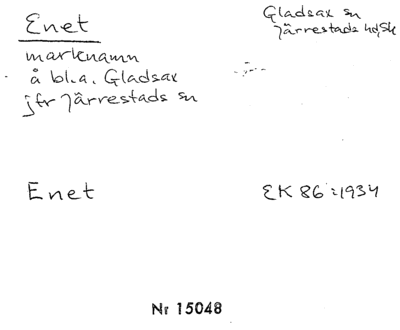 Enet
Gladsax sn
Järrestads hd, Sk
marknamn
å bl.a. Gladsax
jfr Järrestads sn
Enet
EK 86:1934
Nr 15048